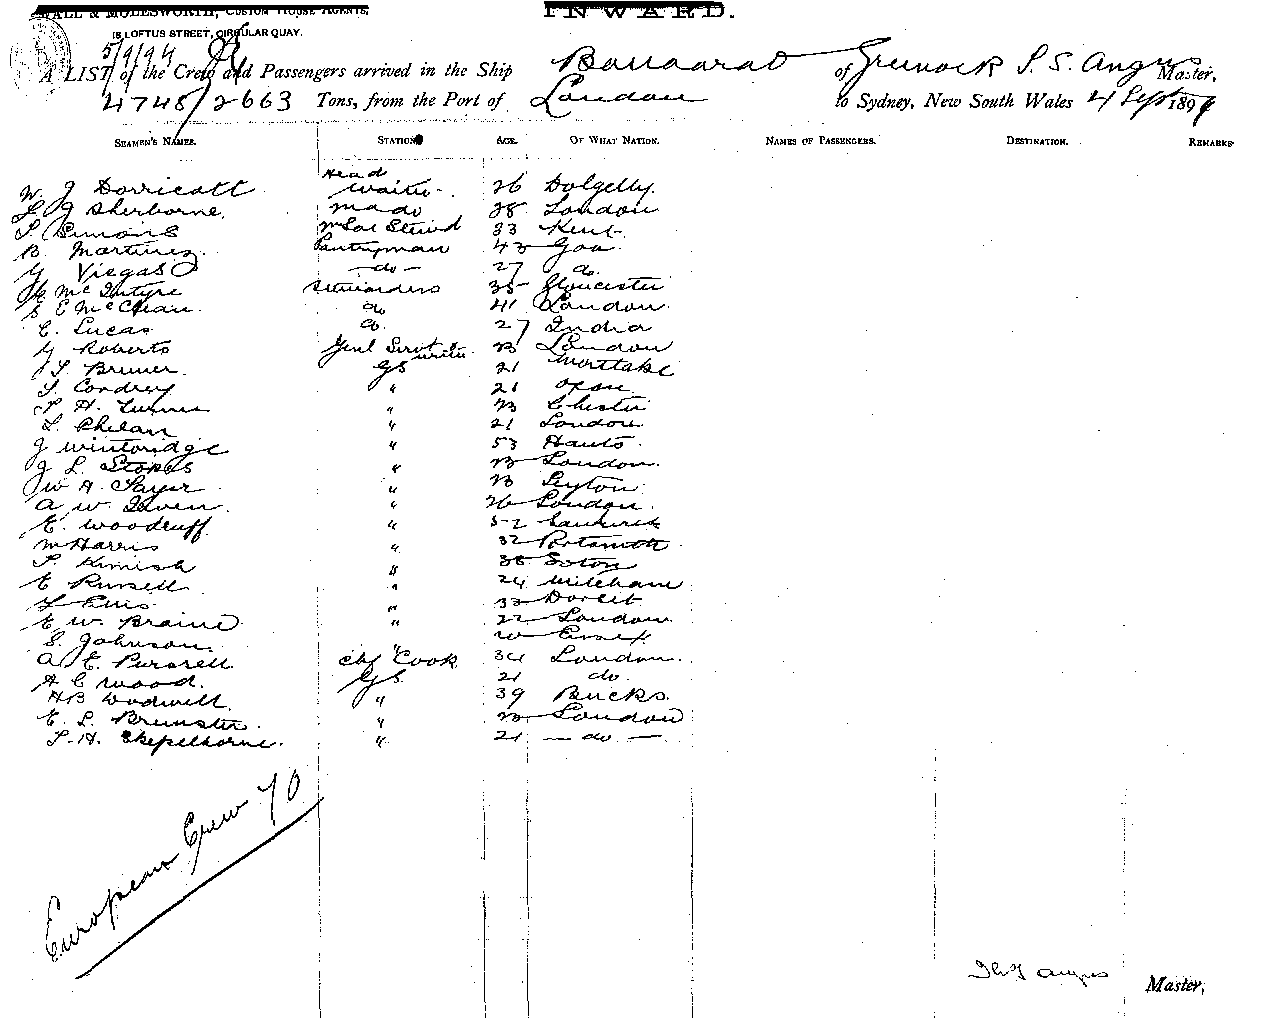 WALL & MOLESWORTH, CUSTOM HOUSE AGENTS,
18 LOFTUS STREET, CIRCULAR QUAY.
INWARD.
5/9/94
A LIST of the Crew and Passengers arrived in the Ship Ballaarat of Greenock P. S. Angus Master,
4748/2663 Tons, from the Port of London to Sydney, New South Wales 4 Sept 1894
SEAMEN'S NAMES. STATION AGE. OF WHAT NATION. NAMES OF PASSENGERS. DESTINATION. REMARKS
W. J Dorricott Head Waiter 26 Dolgelly.
J Sherborne. 38 London
Simons 33 Kent
B. Martinez Pantryman 43 Goa
Viegas — do — 27 do.
McIntyre Stewardess 35 Gloucester
S E McClean do 41 London
E. Lucas do. 27 India
Roberts Genl Servt & writer 23 London
Bremer GS 21 Mortlake
Cordrey " 21 Oxon
H. Turner " 23 Chester
Phelan " 21 London
J Wintoridge " 53 Hants
J L. Stokes " 23 London.
W H. Sayer " 23 Leyton
A W. " 26 London.
E. Woodruff " 52
M Harris " 32 Portsmouth
Kimish " 38 Soton
E Russell " 24 Mitcham
Ellis " 33 Dorset
E W. Braine " 22 London
S. Johnson " 20 Essex
A E. Pursrell Chf Cook 34 London.
A E Wood. GS 21 do.
H B Wodwell " 39 Bucks.
E. L. Brewster " 23 London
H. Skepelhorne. " 21 — do —
European Crew 70
Angus Master,